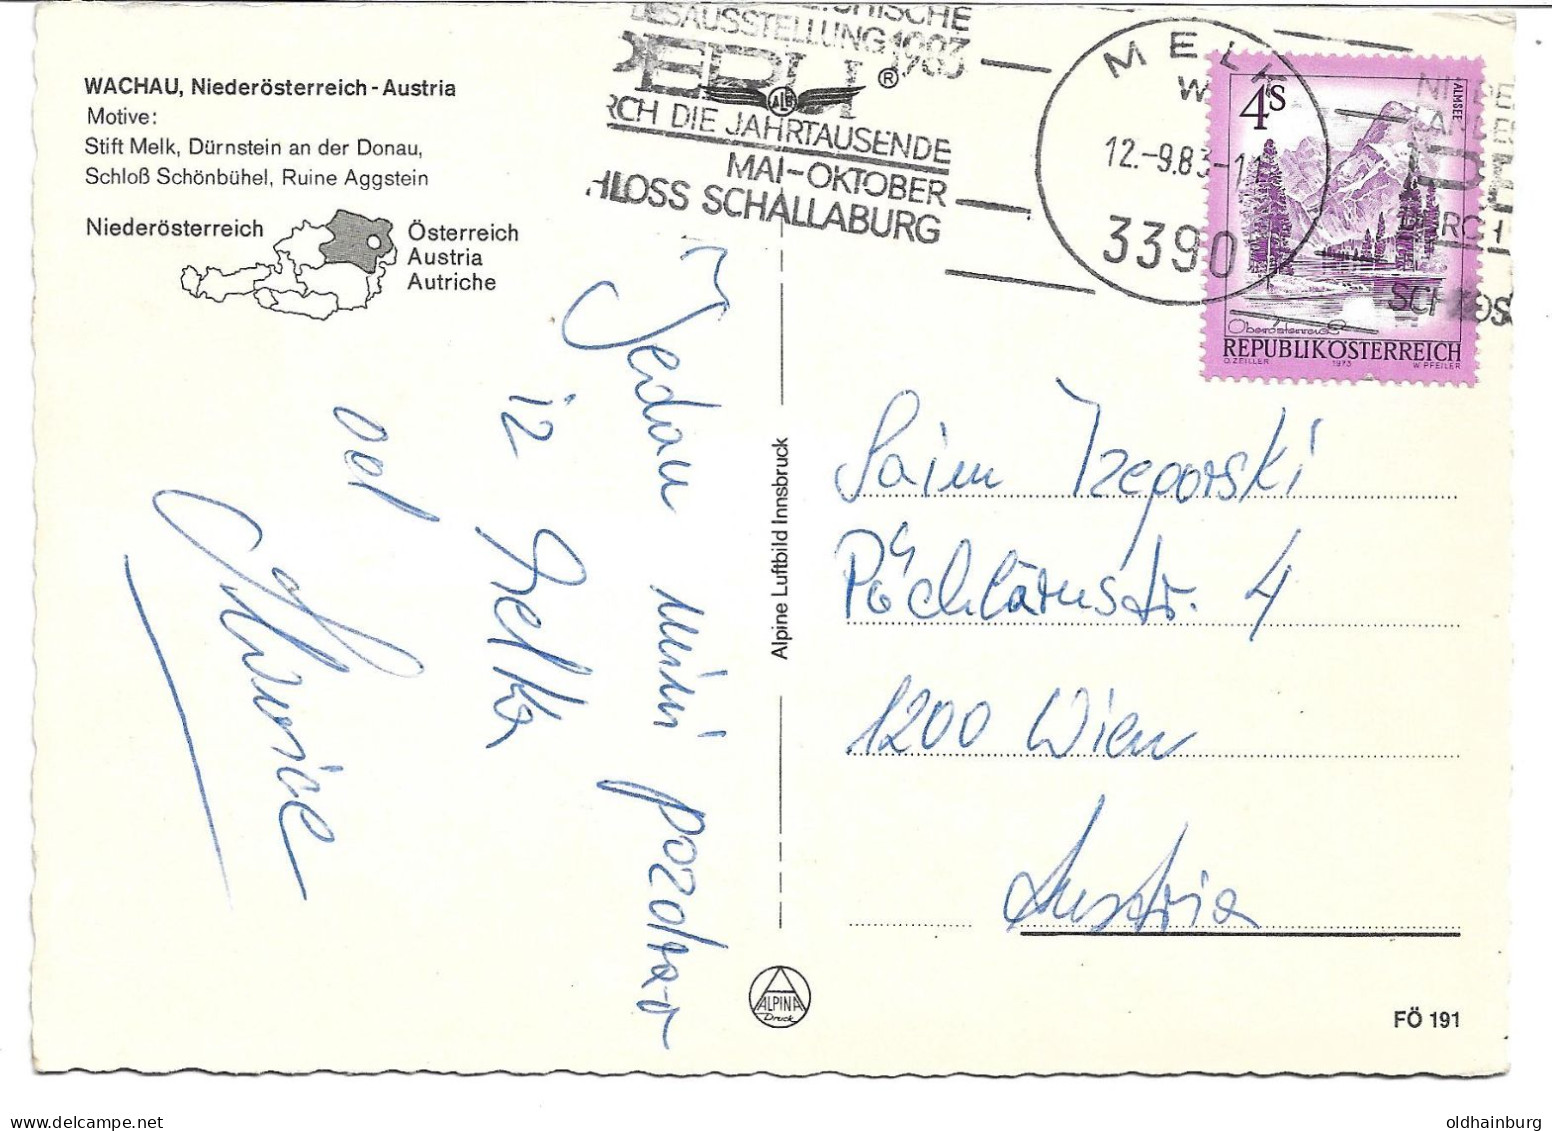 WACHAU, Niederösterreich - Austria
Motive:
Stift Melk, Dürnstein an der Donau,
Schloß Schönbühel, Ruine Aggstein
Niederösterreich
Österreich
Austria
Autriche
SAUSSTELLUNG 1983
PERU ®
ALB
RCH DIE JAHRTAUSENDE
MAI-OKTOBER
HLOSS SCHALLABURG
MELK
W
12.-9.83-11
3390
4S
ALMSEE
Oberösterreich
REPUBLIK ÖSTERREICH
O. ZEILLER 1973 W. PFEILER
Jedan mini pozdrav
iz Melka
od
Alpine Luftbild Innsbruck
Saim
Pöchlarnstr. 4
1200 Wien
Austria
ALPINA
Druck
FÖ 191
oldhainburg